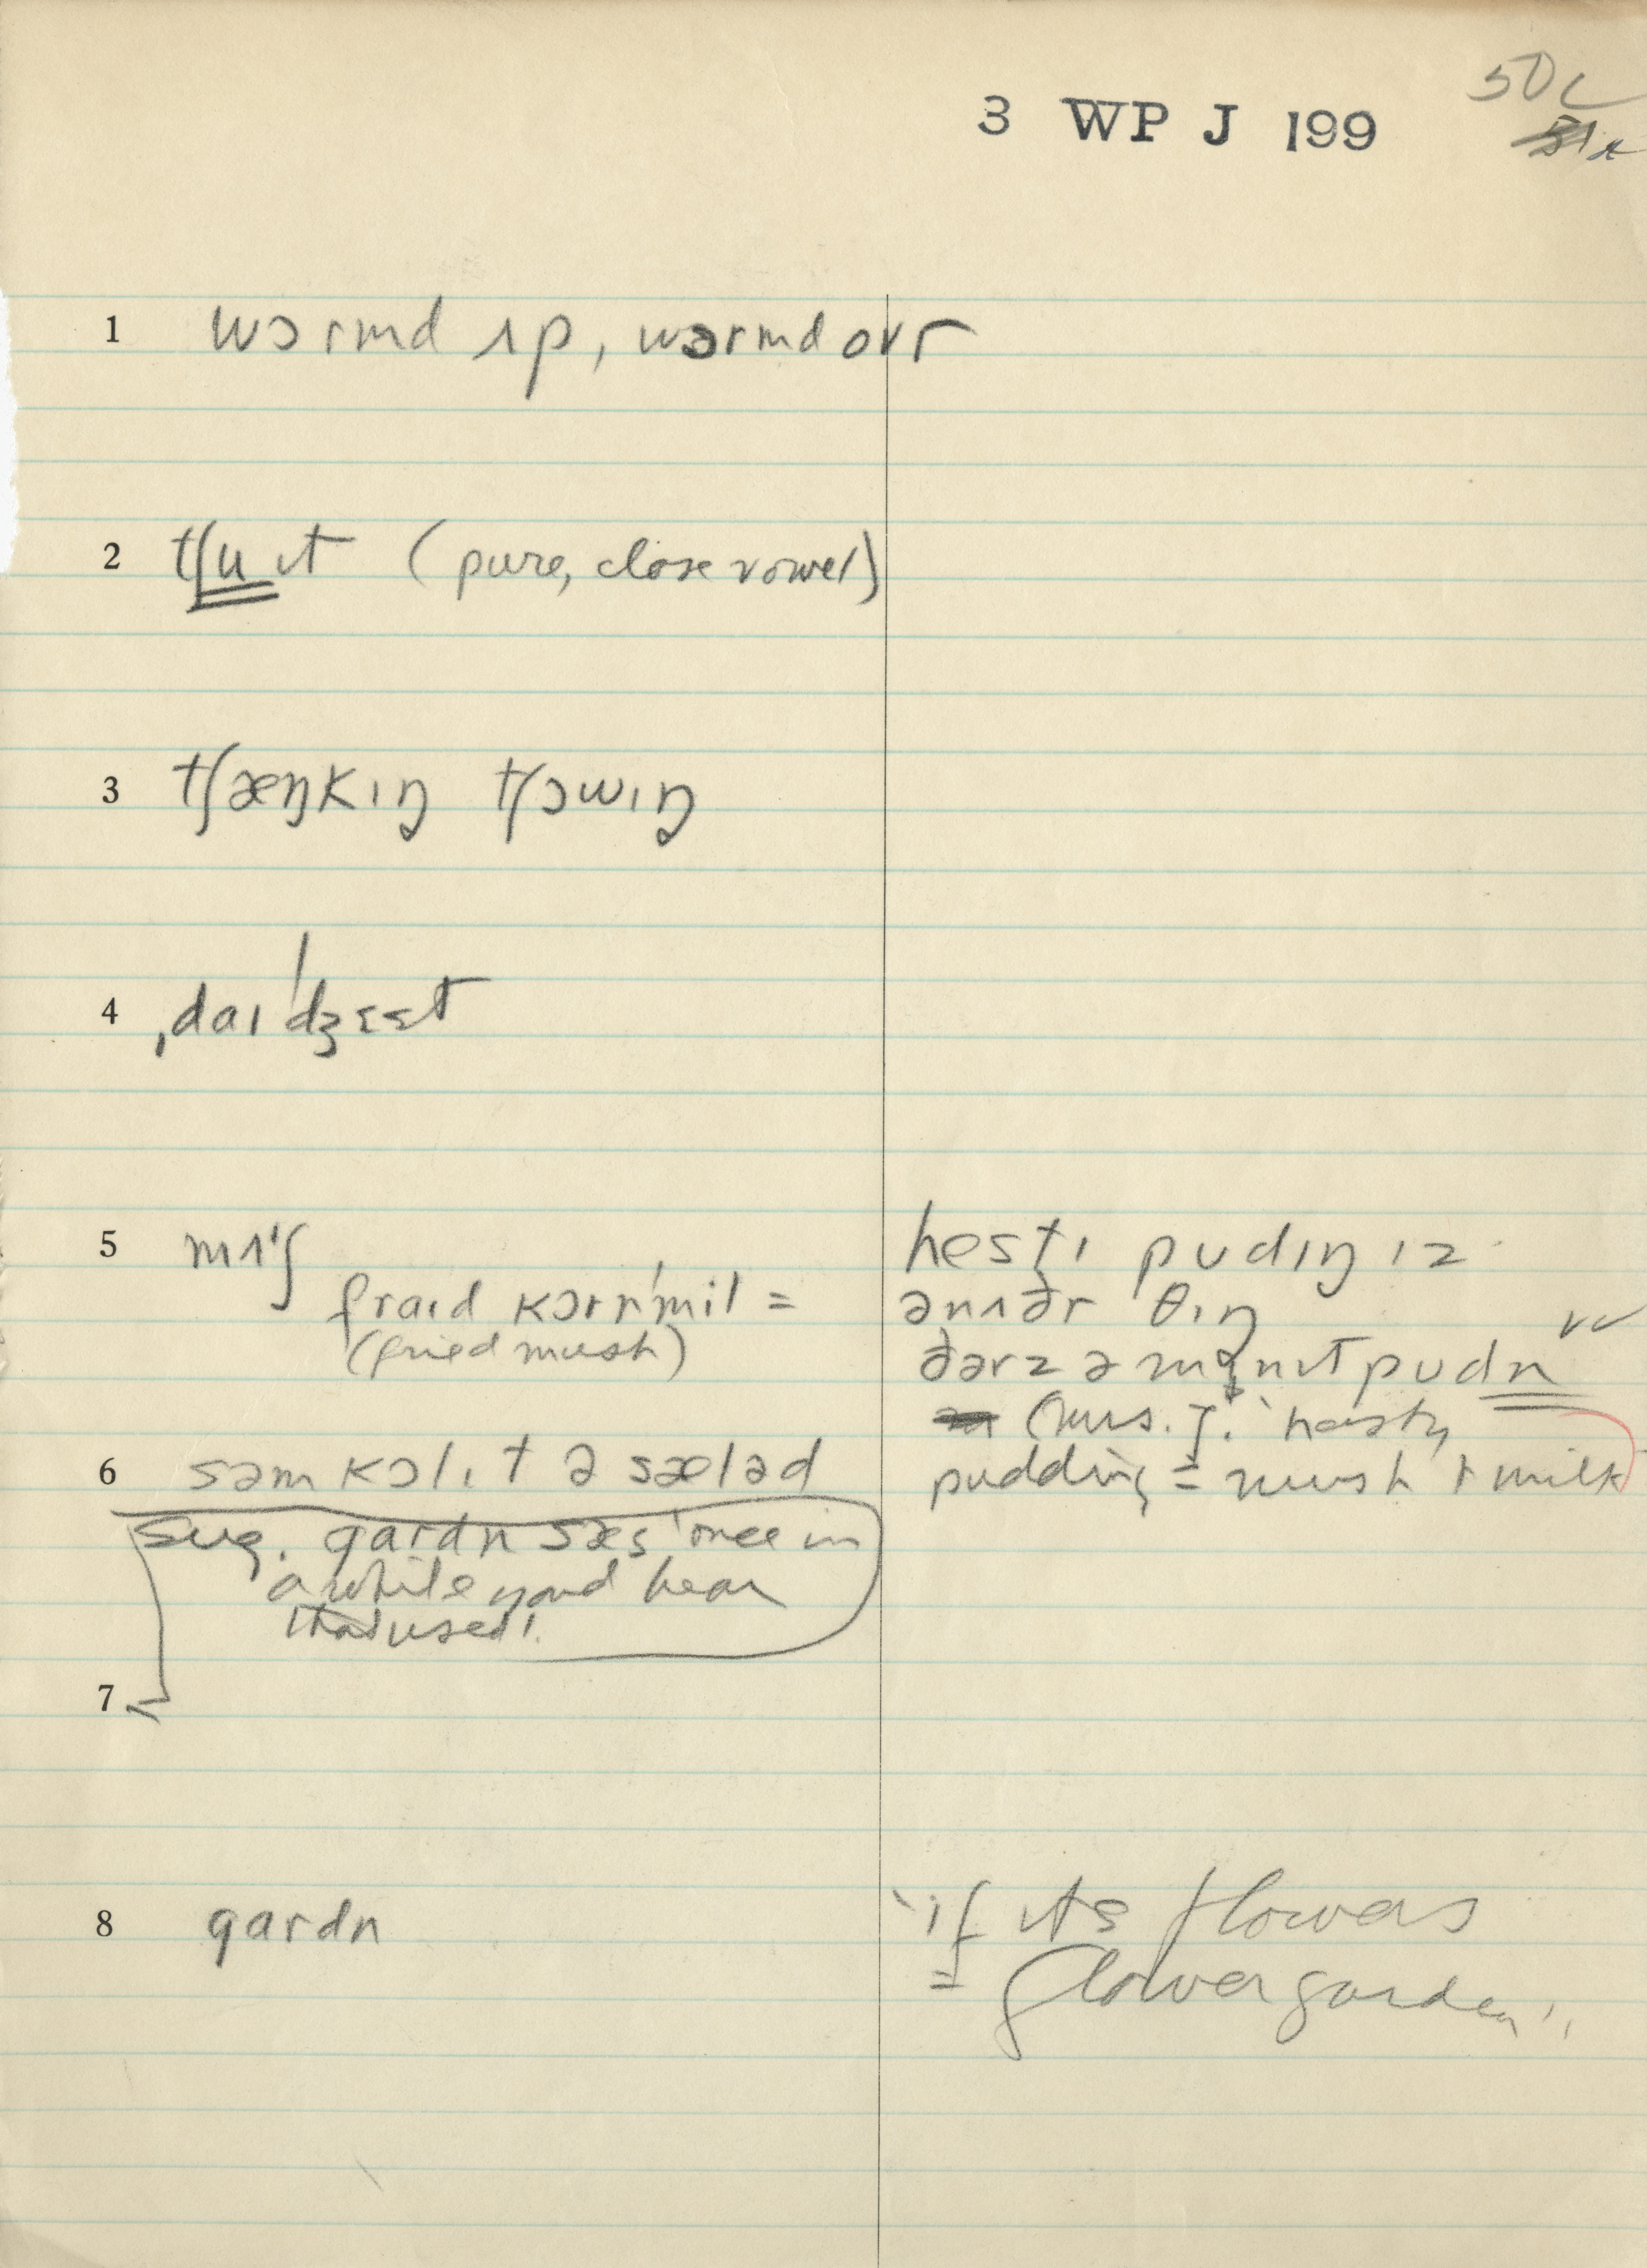 3 WP J 199
50c
1 wɔrmd ʌp, wɔrmd ovr
2 tʃu ɪt (pure, close vowel)
3 tʃæŋkɪŋ tʃɔwɪŋ
4 ˌdaɪˈdʒɛst
5 mʌʃ
fraɪd kɔrnˈmil =
(fried mush)
hestɪ pudɪŋ ɪz
ənʌðr θɪŋ
ðərz ə mɪnɪt pudn
(Mrs. J. 'hasty
pudding = mush + milk)
6 səm kɔl ɪt ə sæləd
sug. gardn sæs 'once in
a while you'd hear
that used'.
7
8 gardn
'if its flowers
= flower garden'